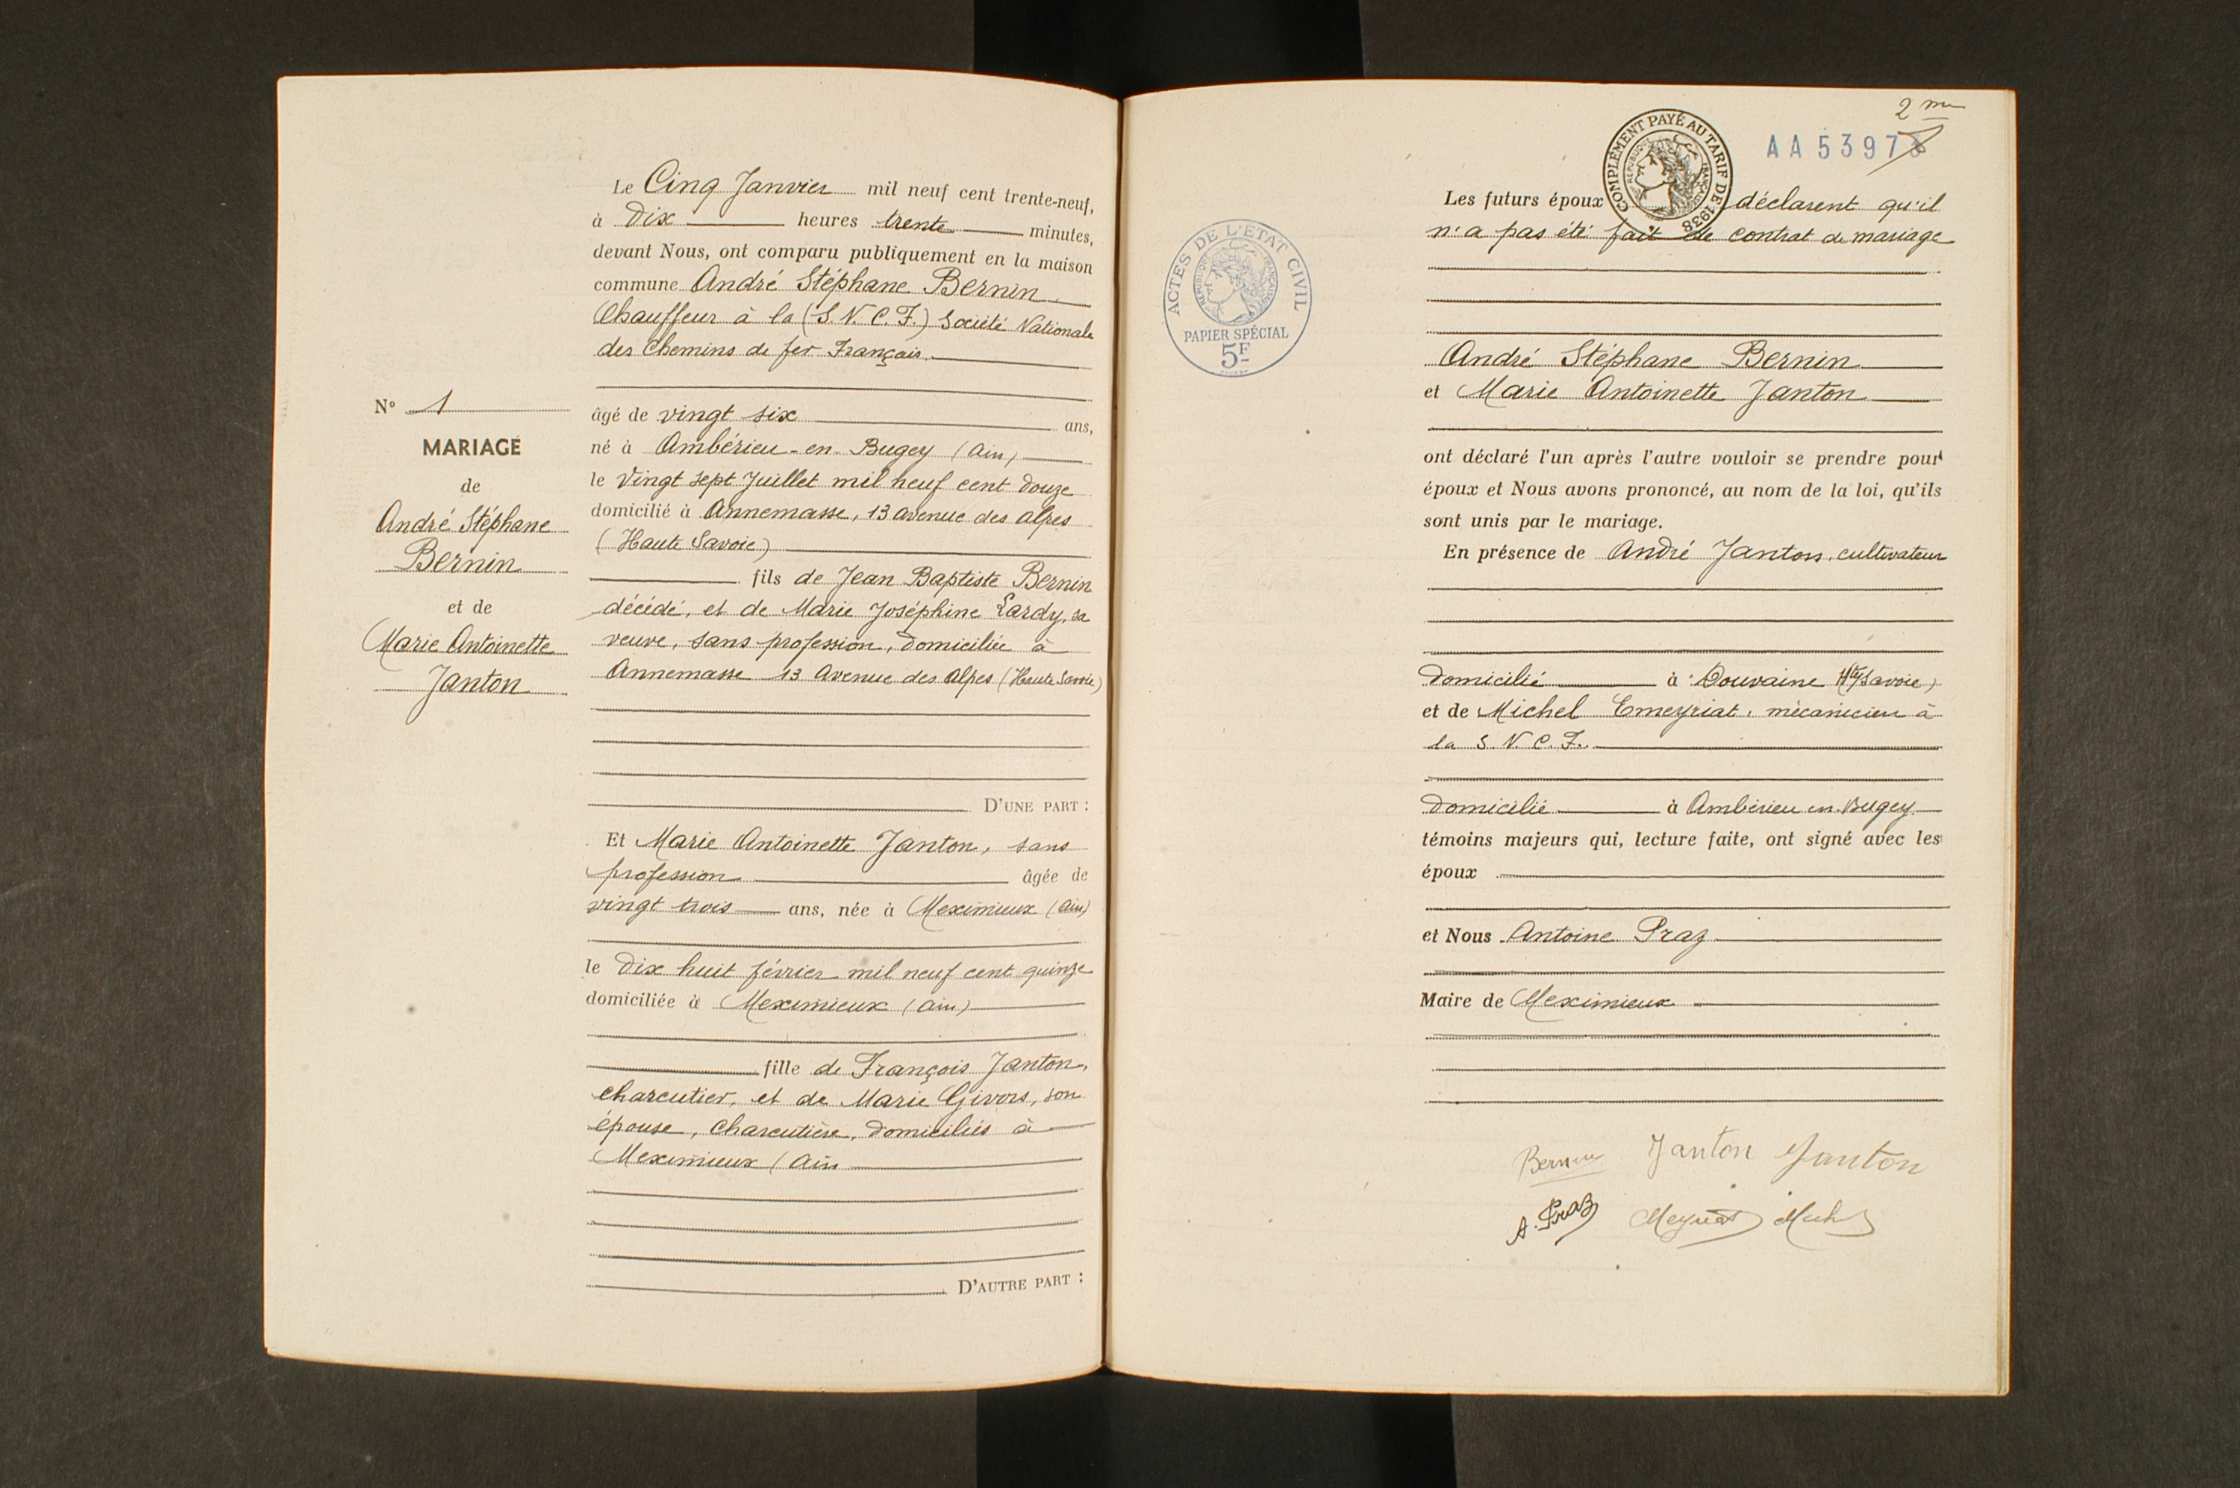 Le Cinq Janvier mil neuf cent trente-neuf,
à Dix heures trente minutes,
devant Nous, ont comparu publiquement en la maison
commune André Stéphane Bernin
Chauffeur à la (S.N.C.F.) Société Nationale
des Chemins de fer Français.
N° 1
MARIAGE
de
André Stéphane
Bernin
et de
Marie Antoinette
Janton
âgé de vingt six ans,
né à Ambérieu-en-Bugey (Ain)
le Vingt sept Juillet mil neuf cent douze
domicilié à Annemasse, 13 avenue des Alpes
(Haute Savoie)
fils de Jean Baptiste Bernin
décédé, et de Marie Joséphine Lardy, sa
veuve, sans profession, domiciliée à
Annemasse 13 Avenue des Alpes (Haute Savoie)
D'UNE PART :
Et Marie Antoinette Janton, sans
profession âgée de
vingt trois ans, née à Meximieux (Ain)
le Dix huit février mil neuf cent quinze
domiciliée à Meximieux (Ain)
fille de François Janton,
charcutier, et de Marie Givors, son
épouse, charcutière, domiciliés à
Meximieux (Ain
D'AUTRE PART :
2 me
AA 5397
COMPLÉMENT PAYÉ AU TARIF DE 1938
RÉPUBLIQUE FRANÇAISE
ACTES DE L'ETAT CIVIL
RÉPUBLIQUE FRANÇAISE
PAPIER SPÉCIAL
5F
Les futurs époux déclarent qu'il
n'a pas été fait de contrat de mariage
André Stéphane Bernin
et Marie Antoinette Janton
ont déclaré l'un après l'autre vouloir se prendre pour
époux et Nous avons prononcé, au nom de la loi, qu'ils
sont unis par le mariage.
En présence de André Janton, cultivateur
domicilié à Douvaine (Hte Savoie)
et de Michel Emeyriat, mécanicien à
la S.N.C.F.
domicilié à Ambérieu en Bugey
témoins majeurs qui, lecture faite, ont signé avec les
époux
et Nous Antoine Praz
Maire de Meximieux
Bernin Janton Janton
A. Praz